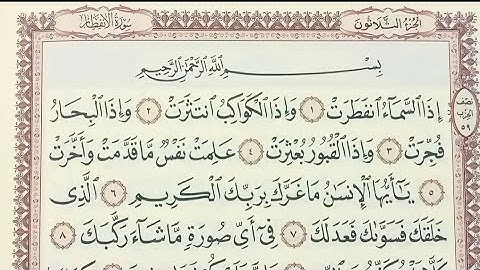 الجزء الثلاثون
سورة الانفطار
بِسْمِ اللَّهِ الرَّحْمَٰنِ الرَّحِيمِ
إِذَا السَّمَاءُ انفَطَرَتْ ١ وَإِذَا الْكَوَاكِبُ انتَثَرَتْ ٢ وَإِذَا الْبِحَارُ
فُجِّرَتْ ٣ وَإِذَا الْقُبُورُ بُعْثِرَتْ ٤ عَلِمَتْ نَفْسٌ مَّا قَدَّمَتْ وَأَخَّرَتْ
٥ يَا أَيُّهَا الْإِنسَانُ مَا غَرَّكَ بِرَبِّكَ الْكَرِيمِ ٦ الَّذِي
خَلَقَكَ فَسَوَّاكَ فَعَدَلَكَ ٧ فِي أَيِّ صُورَةٍ مَّا شَاءَ رَكَّبَكَ ٨
نصف
الحزب
٥٩